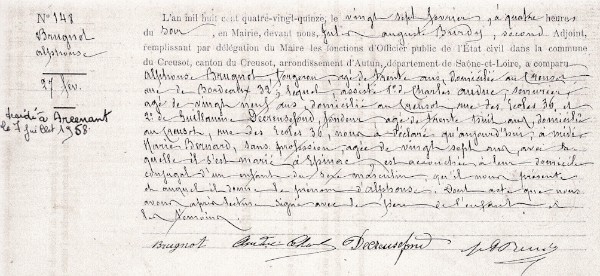 N° 148
Brugnot
Alphonse
27 fév.
décédé à Arcenant
le 7 juillet 1958
L'an mil huit cent quatre-vingt-quinze, le vingt sept février, à quatre heures
du soir, en Mairie, devant nous, Jules Auguste Burdy, second Adjoint,
remplissant par délégation du Maire les fonctions d'Officier public de l'État civil dans la commune
du Creusot, canton du Creusot, arrondissement d'Autun, département de Saône-et-Loire, a comparu
Alphonse Brugnot, forgeron, âgé de trente ans, domicilié au Creusot,
rue de Bordeaux 32, lequel, assisté 1° de Charles serrurier
âgé de vingt neuf ans domicilié au Creusot, rue des Ecoles 36, et
2° de Guillaume Decreusefond, fondeur, âgé de trente huit ans, domicilié
au Creusot, rue des Ecoles 36, nous a déclaré qu'aujourd'hui, à midi
Marie Bernard, sans profession, âgée de vingt sept ans, avec la
quelle il s'est marié à Epinac, est accouchée à leur domicile
conjugal d'un enfant du sexe masculin, qu'il nous présente
et auquel il donne le prénom d'Alphonse. Dont acte que nous
avons après lecture signé avec le père de l'enfant et
les témoins.
Brugnot Decreusefond